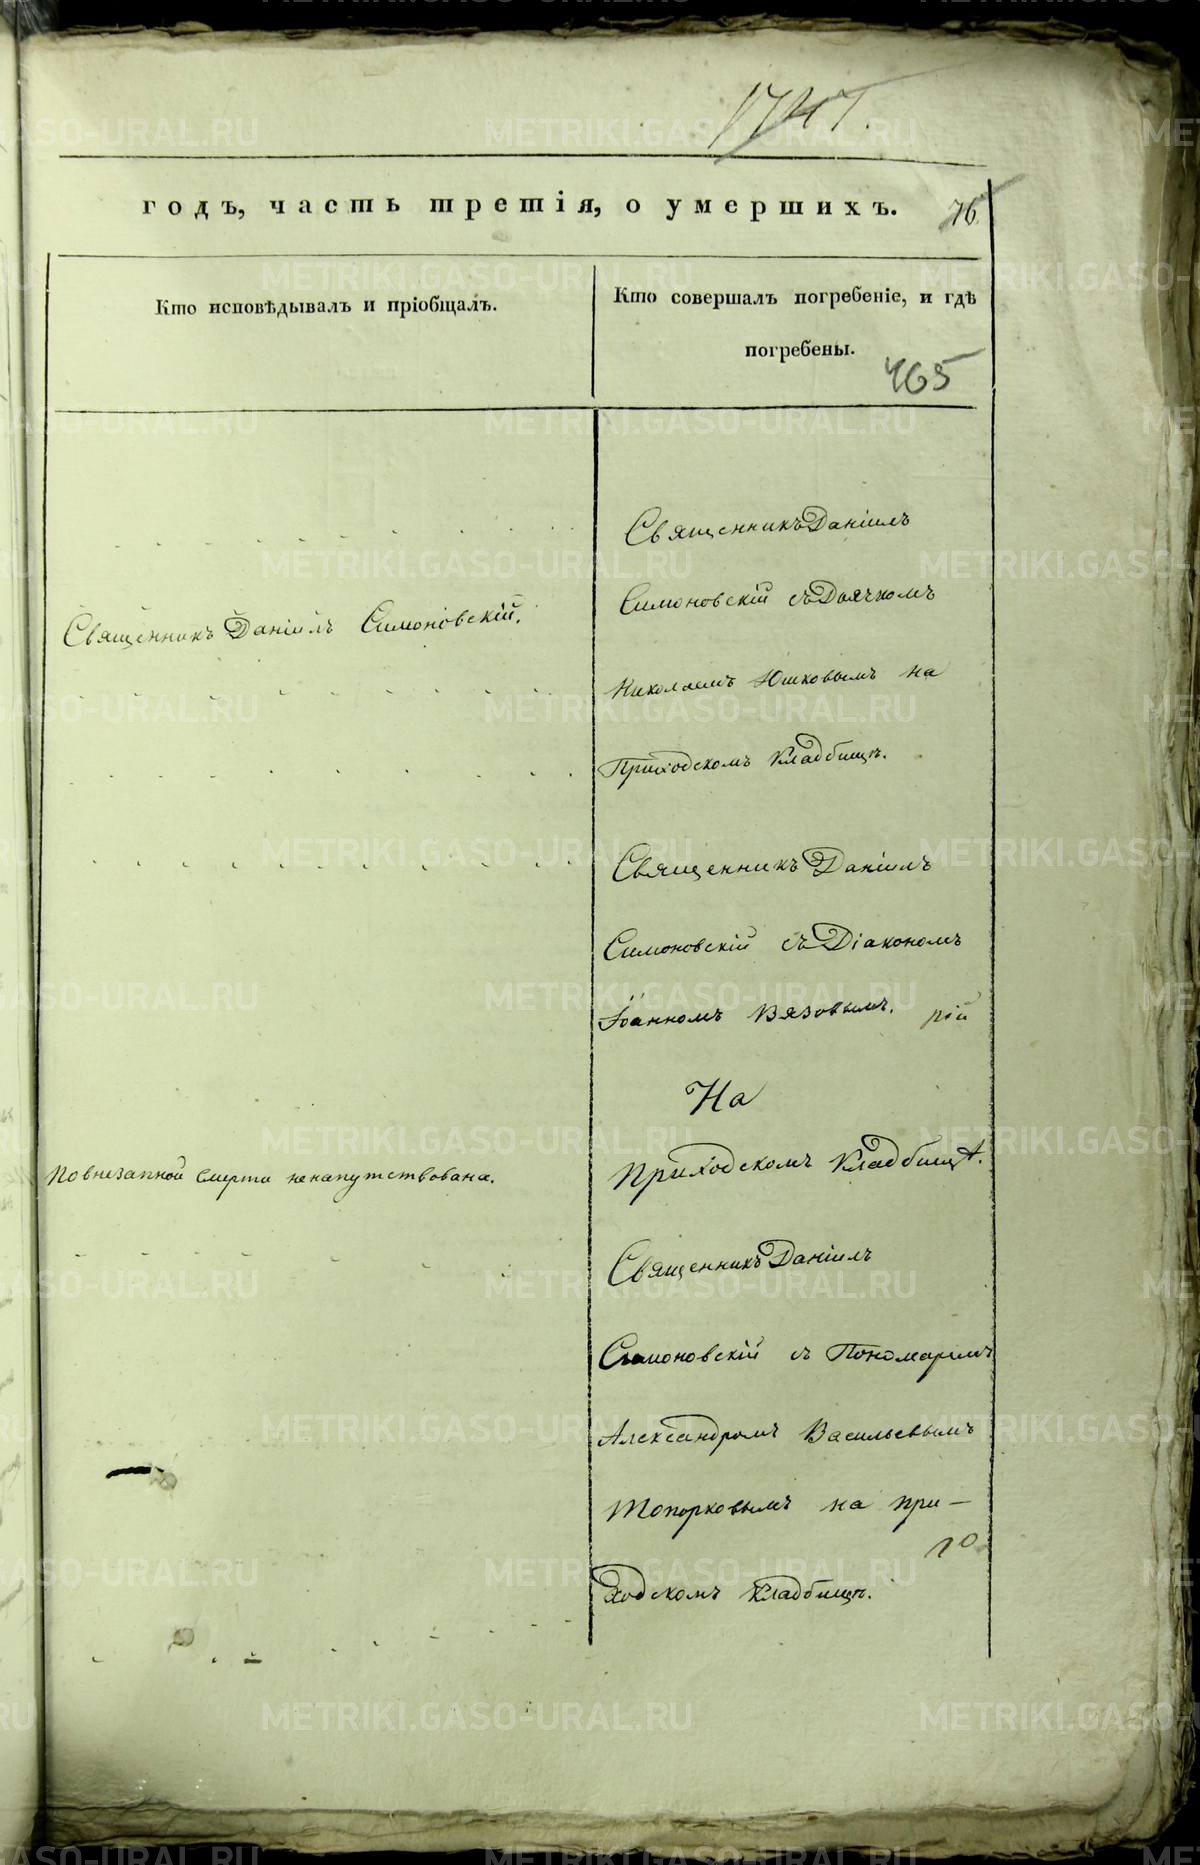 годъ, часть третія, о умершихъ. 76
Кто исповѣдывалъ и пріобщалъ.
Кто совершалъ погребеніе, и гдѣ
погребены.
465
Священникъ Даніилъ
Симоновскій съ Дьячкомъ
Священникъ Даніилъ Симоновскій.
Николаемъ Юшковымъ на
Приходскомъ Кладбищѣ.
Священникъ Даніилъ
Симоновскій съ Діакономъ
Іоанномъ Вязовымъ. рій
На
Приходскомъ Кладбищѣ.
По внезапной смерти ненапутствована.
Священникъ Даніилъ
Симоновскій съ Пономаремъ
Александромъ Васильевымъ
Топорковымъ на при-
го
ходскомъ Кладбищѣ.
METRIKI.GASO-URAL.RU